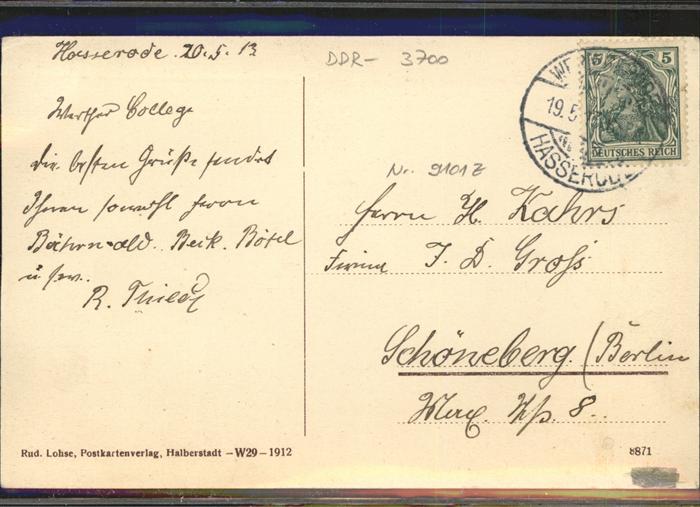 Hasserode 20.5.13
DDR- 3700
5 5
DEUTSCHES REICH
19.5
HASSERODE
Werther College
die besten Grüße sendet
Ihnen sowohl Herrn
Beik. Bötel
u. s. w.
R.
Nr. 9101Z
Herrn H. Kahrs
Firma J. D. Groß
Schöneberg / Berlin
8..
Rud. Lohse, Postkartenverlag, Halberstadt —W29—1912
8871